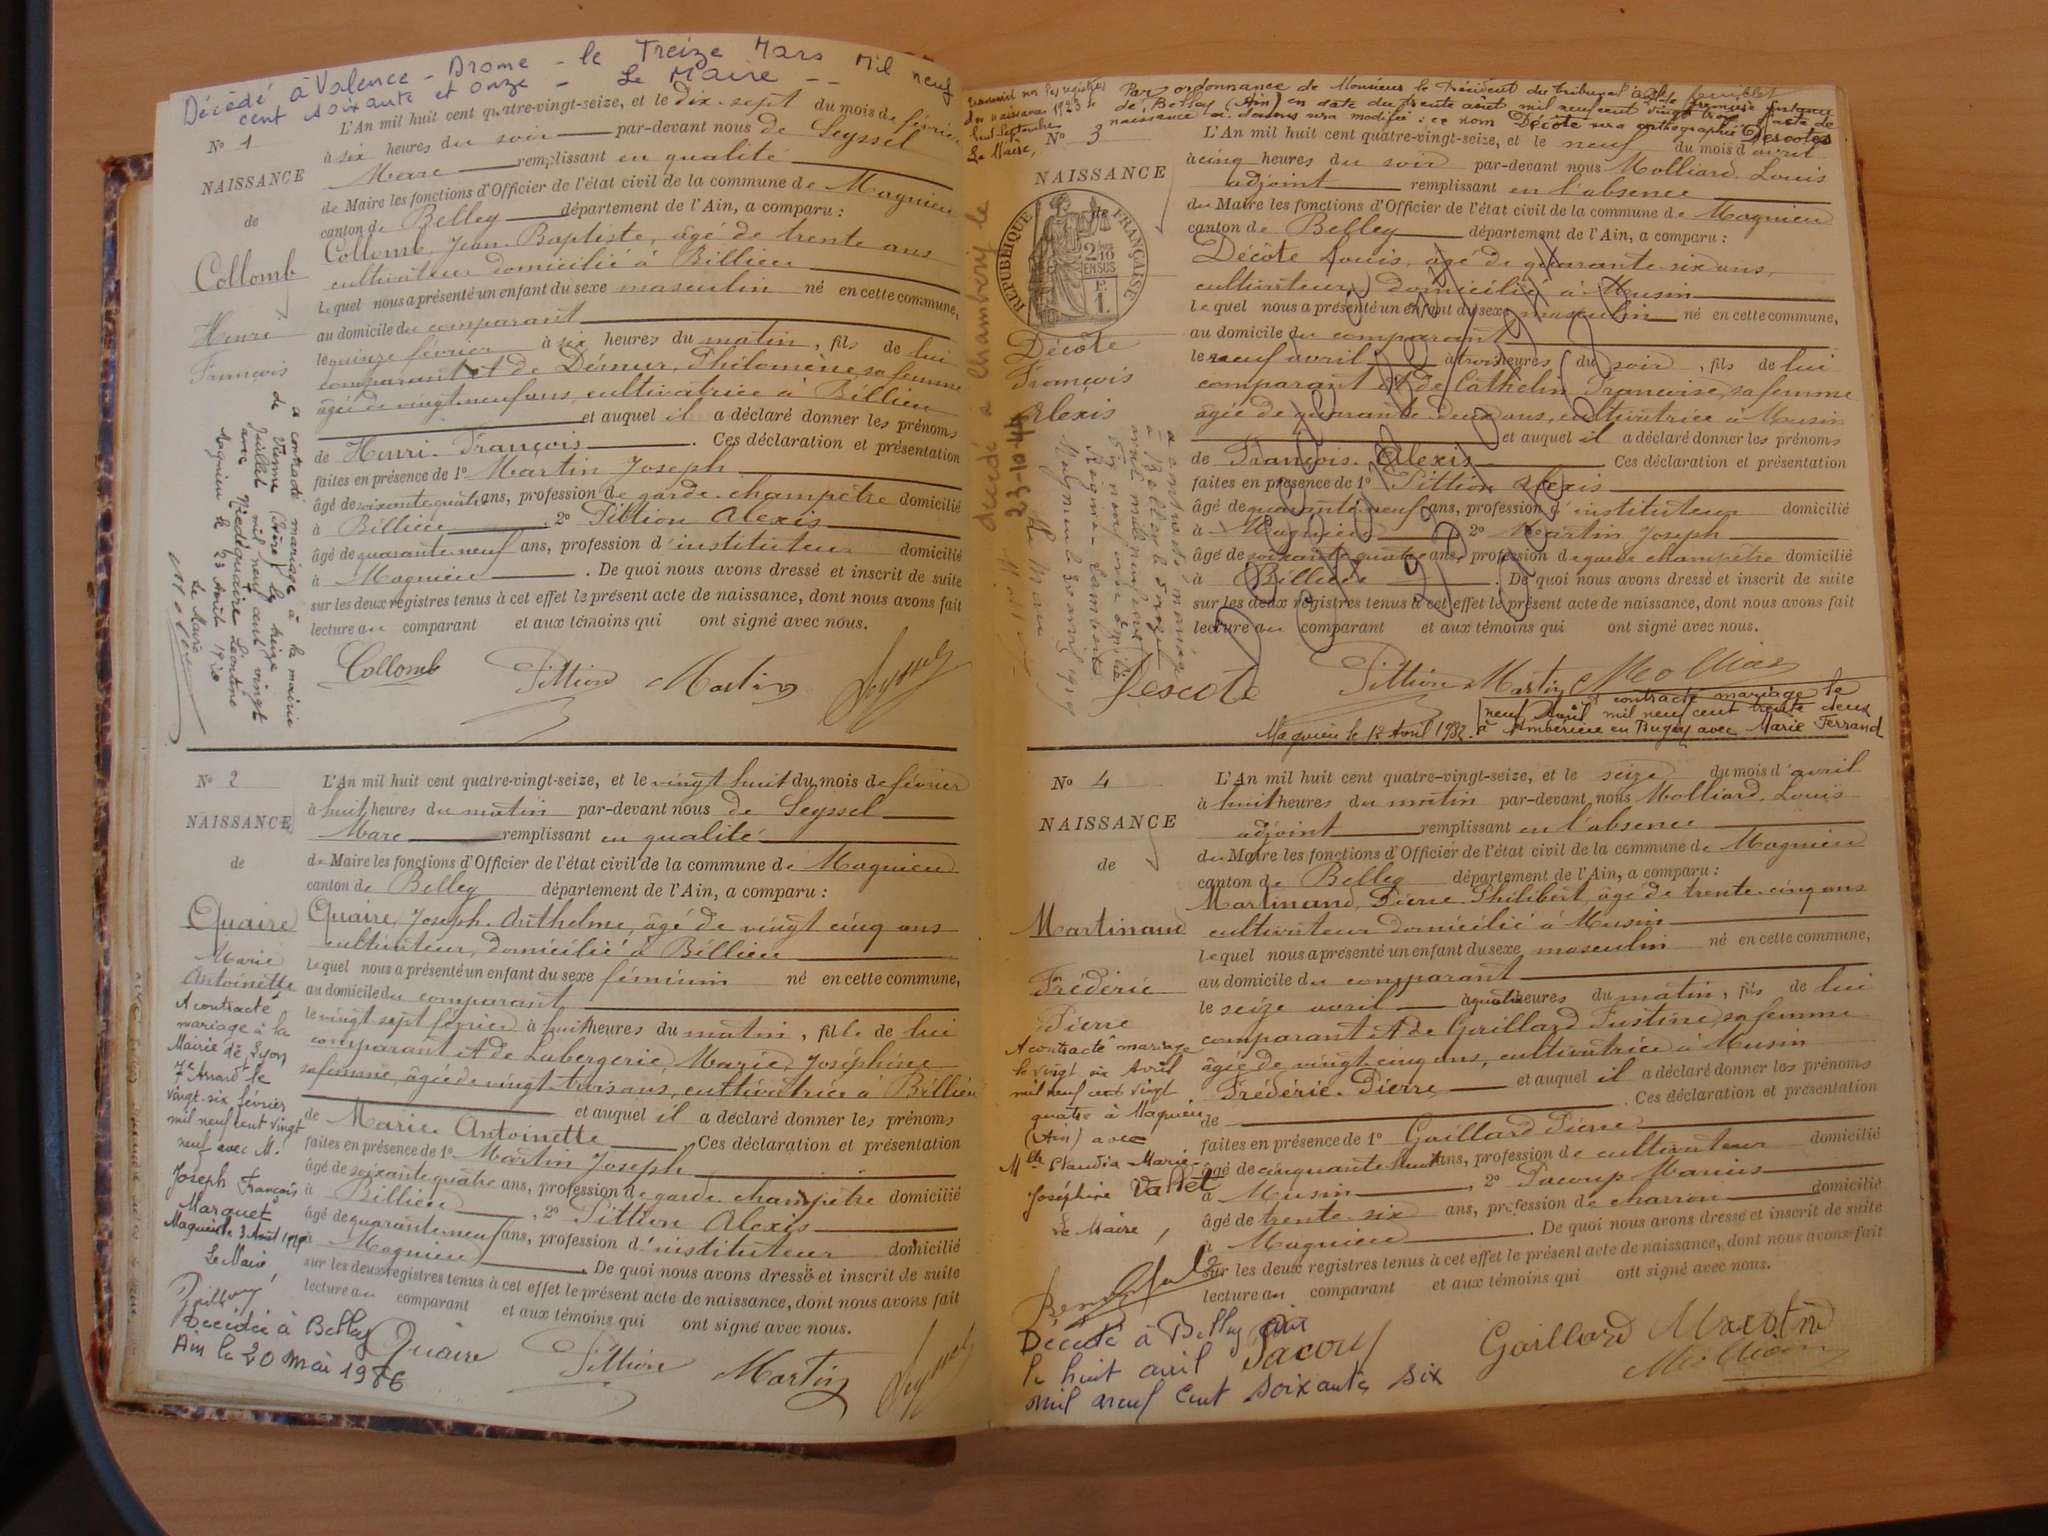 Décédé à Valence - Drome - le Treize Mars mil neuf
cent soixante et onze - Le Maire --
N° 1
NAISSANCE
de
Collomb
Henri
François
L'An mil huit cent quatre-vingt-seize, et le dix-sept du mois de février
à six heures du soir par-devant nous de Seyssel
Marc remplissant en qualité
de Maire les fonctions d'Officier de l'état civil de la commune de Magnieu
canton de Belley département de l'Ain, a comparu :
Collomb, Jean-Baptiste, âgé de trente ans
cultivateur domicilié à Billieu
lequel nous a présenté un enfant du sexe masculin né en cette commune,
au domicile du comparant
le quinze février à six heures du matin, fils de lui
comparant et de Démur, Philomène sa femme
âgée de vingt-neuf ans, cultivatrice à Billieu
et auquel il a déclaré donner les prénoms
de Henri-François. Ces déclaration et présentation
faites en présence de 1° Martin Joseph
âgé de soixante quatre ans, profession de garde-champêtre domicilié
à Billieu, 2° Pittion Alexis
âgé de quarante-neuf ans, profession d'instituteur domicilié
à Magnieu. De quoi nous avons dressé et inscrit de suite
sur les deux registres tenus à cet effet le présent acte de naissance, dont nous avons fait
lecture au comparant et aux témoins qui ont signé avec nous.
Collomb Pittion Martin
a contracté mariage à la mairie
de Virieu le treize
Juillet mil neuf cent vingt
avec Léontine
Magnieu le
Le Maire
N° 2
NAISSANCE
de
Quaire
Marie
Antoinette
A contracté
mariage à la
Mairie de Lyon
7e Arrard le
vingt-six février
mil neuf cent vingt
neuf avec M.
Joseph François
Marquet
Magnieu le 3 Août
Le Maire
Décédée à Belley
Ain le 20 mai 1986
L'An mil huit cent quatre-vingt-seize, et le vingt huit du mois de février
à huit heures du matin par-devant nous de Seyssel
Marc remplissant en qualité
de Maire les fonctions d'Officier de l'état civil de la commune de Magnieu
canton de Belley département de l'Ain, a comparu :
Quaire, Joseph-Anthelme, âgé de vingt cinq ans
cultivateur, domicilié à Billieu
lequel nous a présenté un enfant du sexe féminin né en cette commune,
au domicile du comparant
le vingt-sept février à huit heures du matin, fille de lui
comparant et de Labergerie, Marie, Joséphine
sa femme, âgée de vingt-trois ans, cultivatrice à Billieu
et auquel il a déclaré donner les prénoms
de Marie Antoinette. Ces déclaration et présentation
faites en présence de 1° Martin Joseph
âgé de soixante quatre ans, profession de garde-champêtre domicilié
à Billieu, 2° Pittion Alexis
âgé de quarante-neuf ans, profession d'instituteur domicilié
à Magnieu. De quoi nous avons dressé et inscrit de suite
sur les deux registres tenus à cet effet le présent acte de naissance, dont nous avons fait
lecture au comparant et aux témoins qui ont signé avec nous.
Quaire Pittion Martin
Par ordonnance de Monsieur le Président du tribunal de première instance
de Belley (Ain) en date du trente août mil neuf cent vingt trois l'acte de
naissance ci-dessous sera modifié : ce nom Décôte sera orthographié Descotes
Le Maire,
N° 3
NAISSANCE
de
REPUBLIQUE FRANÇAISE
2/10 EN SUS
Décôte
François
Alexis
décédé à Chambéry le
23-10-44
L'An mil huit cent quatre-vingt-seize, et le neuf du mois d'avril
à cinq heures du soir par-devant nous Molliard, Louis
adjoint remplissant en l'absence
du Maire les fonctions d'Officier de l'état civil de la commune de Magnieu
canton de Belley département de l'Ain, a comparu :
Décôte Louis, âgé de quarante-six ans,
cultivateur, domicilié à Musin
lequel nous a présenté un enfant du sexe masculin né en cette commune,
au domicile du comparant
le neuf avril à trois heures du soir, fils de lui
comparant et de Cathelin Françoise, sa femme
âgée de quarante deux ans, cultivatrice à Musin
et auquel il a déclaré donner les prénoms
de François-Alexis Ces déclaration et présentation
faites en présence de 1° Pittion Alexis
âgé de quarante neuf ans, profession d'instituteur domicilié
à Magnieu 2° Martin Joseph
âgé de soixante quatre ans, profession de garde champêtre domicilié
à Billieu. De quoi nous avons dressé et inscrit de suite
sur les deux registres tenus à cet effet le présent acte de naissance, dont nous avons fait
lecture au comparant et aux témoins qui ont signé avec nous.
Descote Pittion Martin Molliard
a contracté mariage le
neuf Avril mil neuf cent trente deux
à Ambérieu en Bugey avec Marie Ferrand
Magnieu le 12 Avril 1932.
N° 4
NAISSANCE
de
Martinand
Frédéric
Pierre
A contracté mariage
le vingt six Avril
mil neuf cent vingt
quatre à Magnieu
(Ain) avec
Mlle Claudia Marie-
Joséphine Vallet
Le Maire,
Décédé à Belley Ain
le huit avril
mil neuf cent soixante six
L'An mil huit cent quatre-vingt-seize, et le seize du mois d'avril
à huit heures du matin par-devant nous Molliard, Louis
adjoint remplissant en l'absence
du Maire les fonctions d'Officier de l'état civil de la commune de Magnieu
canton de Belley département de l'Ain, a comparu :
Martinand, Pierre-Philibert, âgé de trente-cinq ans
cultivateur domicilié à Musin
lequel nous a présenté un enfant du sexe masculin né en cette commune,
au domicile du comparant
le seize avril à quatre heures du matin, fils de lui
comparant et de Gaillard Justine, sa femme
âgée de vingt-cinq ans, cultivatrice à Musin
Frédéric-Pierre et auquel il a déclaré donner les prénoms
de . Ces déclaration et présentation
faites en présence de 1° Gaillard Pierre
âgé de cinquante huit ans, profession de cultivateur domicilié
à Musin, 2° Pacoup Marius
âgé de trente-six ans, profession de charron domicilié
à Magnieu. De quoi nous avons dressé et inscrit de suite
sur les deux registres tenus à cet effet le présent acte de naissance, dont nous avons fait
lecture au comparant et aux témoins qui ont signé avec nous.
Gaillard Molliard